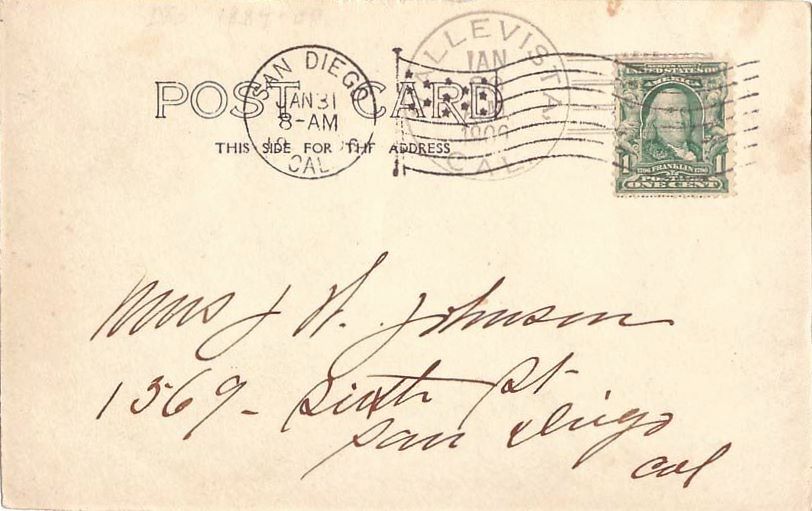 SAN DIEGO
JAN 31
8-AM
CAL.
ALLEVISTA,
JAN
1906
CAL
POST CARD
THIS SIDE FOR THE ADDRESS
UNITED STATES OF AMERICA
1 1
1706 FRANKLIN 1790
POSTAGE
ONE CENT
Mrs J W. Johnson
1569 - Sixth St
San Diego
Cal